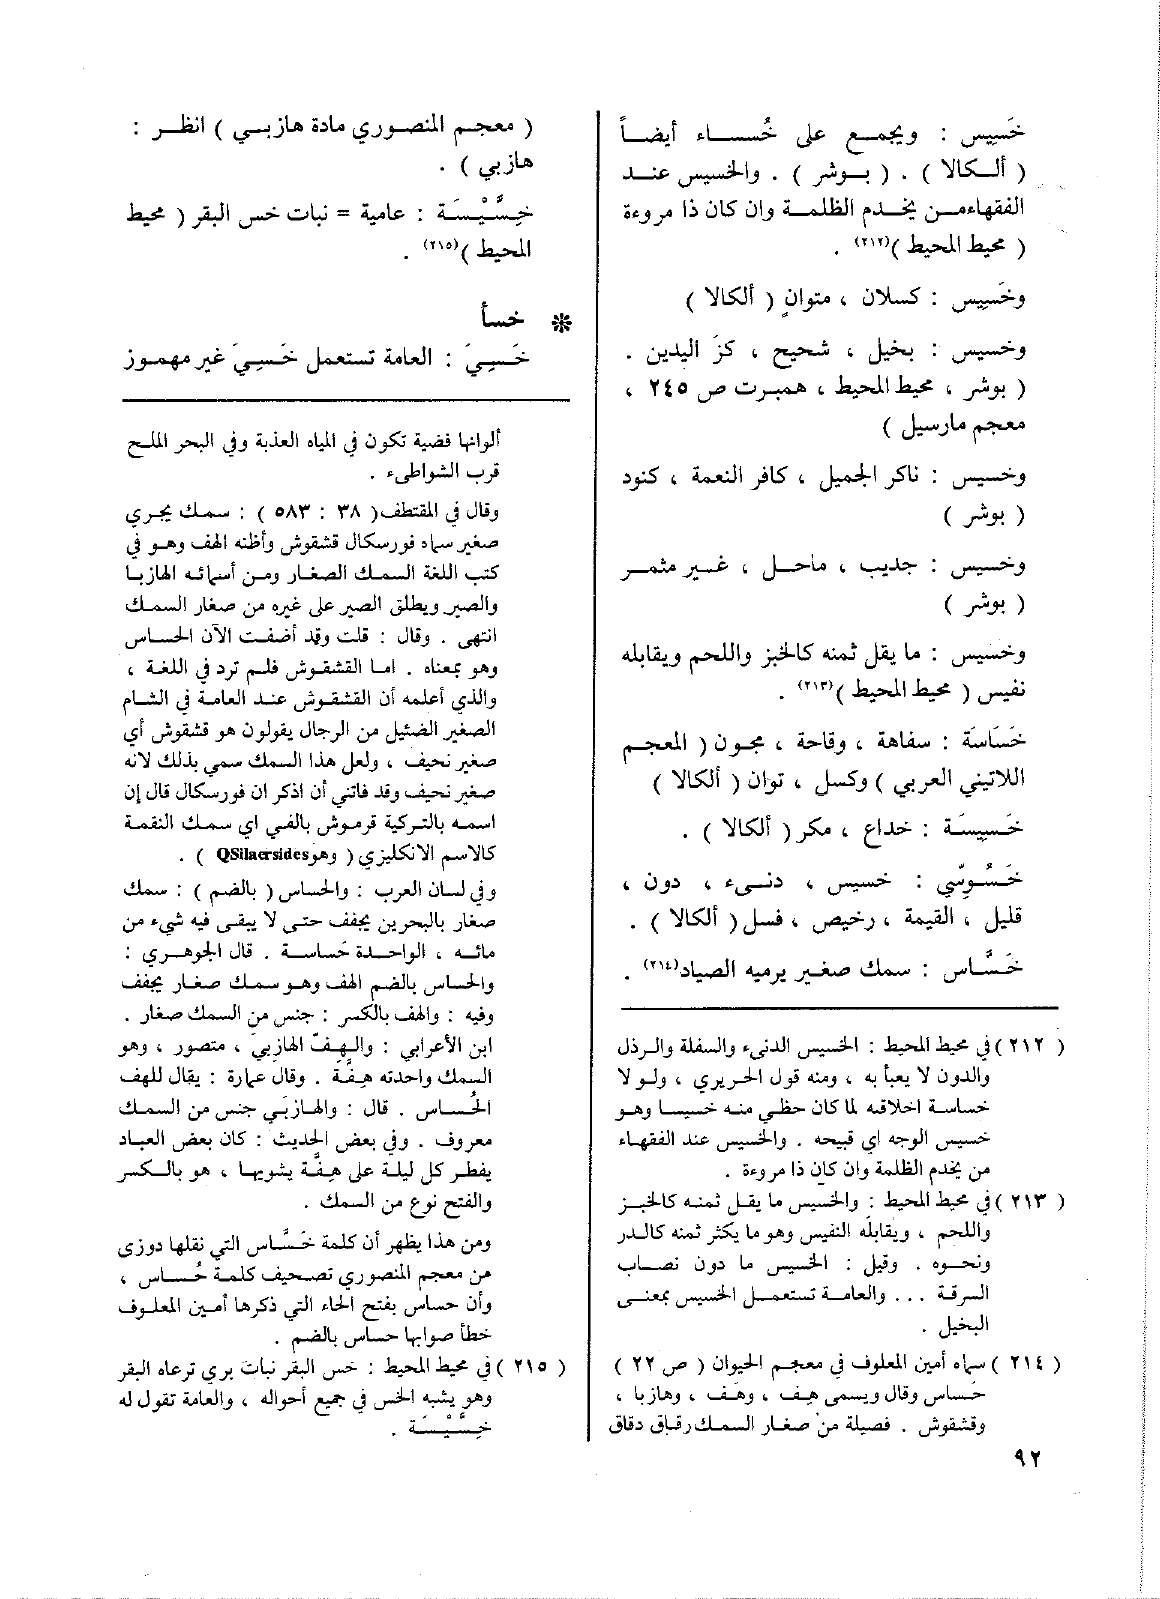 خَسِيس : ويجمع على خُسساء أيضاً
( ألكالا ) . ( بوشر ) . والخسيس عند
الفقهاءمن يخدم الظلمة وان كان ذا مروءة
( محيط المحيط )(٢١٢) .
وخَسِيس : كسلان ، متوانٍ ( ألكالا )
وخسيس : بخيل ، شحيح ، كزّ اليدين .
( بوشر ، محيط المحيط ، همبرت ص ٢٤٥ ،
معجم مارسيل )
وخسيس : ناكر الجميل ، كافر النعمة ، كنود
( بوشر )
وخسيس : جديب ، ماحل ، غير مثمر
( بوشر )
وخسيس : ما يقل ثمنه كالخبز واللحم ويقابله
نفيس ( محيط المحيط )(٢١٣) .
خَسَاسَة : سفاهة ، وقاحة ، مجون ( المعجم
اللاتيني العربي ) وكسل ، توان ( ألكالا )
خَسِيسَة : خداع ، مكر ( ألكالا ) .
خَسُوسّي : خسيس ، دنيء ، دون ،
قليل ، القيمة ، رخيص ، فسل ( ألكالا ) .
خَسَّاس : سمك صغير يرميه الصياد(٢١٤) .
( ٢١٢ ) في محيط المحيط : الخسيس الدنيء والسفلة والرذل
والدون لا يعبأ به ، ومنه قول الحريري ، ولو لا
خساسة اخلاقه لما كان حظي منه خسيسا وهو
خسيس الوجه اي قبيحه . والخسيس عند الفقهاء
من يخدم الظلمة وان كان ذا مروءة .
( ٢١٣ ) في محيط المحيط : والخسيس ما يقل ثمنه كالخبز
واللحم ، ويقابله النفيس وهو ما يكثر ثمنه كالدر
ونحوه . وقيل : الخسيس ما دون نصاب
السرقة ... والعامة تستعمل الخسيس بمعنى
البخيل .
( ٢١٤ ) سماه أمين المعلوف في معجم الحيوان ( ص ٢٢ )
حساس وقال ويسمى هِف ، وهَف ، وهازبا ،
وقشقوش . فصيلة من صغار السمك رقاق دقاق
٩٢
( معجم المنصوري مادة هازبي ) انظر :
هازبي ) .
خِسَّيْسَة : عامية = نبات خس البقر ( محيط
المحيط )(٢١٥) .
❊ خسأ
خَسِيَ : العامة تستعمل خَسِيَ غير مهموز
ألوانها فضية تكون في المياه العذبة وفي البحر الملح
قرب الشواطىء .
وقال في المقتطف ( ٣٨ : ٥٨٣ ) : سمك يجري
صغير سماه فورسكال قشقوش وأظنه الهف وهو في
كتب اللغة السمك الصغار ومن أسمائه الهازبا
والصير ويطلق الصير على غيره من صغار السمك
انتهى . وقال : قلت وقد أضفت الآن الحساس
وهو بمعناه . اما القشقوش فلم ترد في اللغة ،
والذي أعلمه أن القشقوش عند العامة في الشام
الصغير الضئيل من الرجال يقولون هو قشقوش أي
صغير نحيف ، ولعل هذا السمك سمي بذلك لانه
صغير نحيف وقد فاتني أن اذكر ان فورسكال قال إن
اسمه بالتركية قرموش بالفي اي سمك النقمة
كالاسم الانكليزي ( وهوQSilaersides ) .
وفي لسان العرب : والحساس ( بالضم ) : سمك
صغار بالبحرين يجفف حتى لا يبقى فيه شيء من
مائه ، الواحدة حُساسة . قال الجوهري :
والحساس بالضم الهف وهو سمك صغار يجفف
وفيه : والهف بالكسر : جنس من السمك صغار .
ابن الأعرابي : والهِفّ الهازبي ، مقصور ، وهو
السمك واحدته هِفَّة . وقال عمارة : يقال للهف
الحُساس . قال : والهازبَى جنس من السمك
معروف . وفي بعض الحديث : كان بعض العباد
يفطر كل ليلة على هِفَّة يشويها ، هو بالكسر
والفتح نوع من السمك .
ومن هذا يظهر أن كلمة خَسَّاس التي نقلها دوزى
من معجم المنصوري تصحيف كلمة حُساس ،
وأن حساس بفتح الحاء التي ذكرها أمين المعلوف
خطأ صوابها حساس بالضم .
( ٢١٥ ) في محيط المحيط : خس البقر نبات بري ترعاه البقر
وهو يشبه الخس في جميع أحواله ، والعامة تقول له
خِسَّيْسَة .